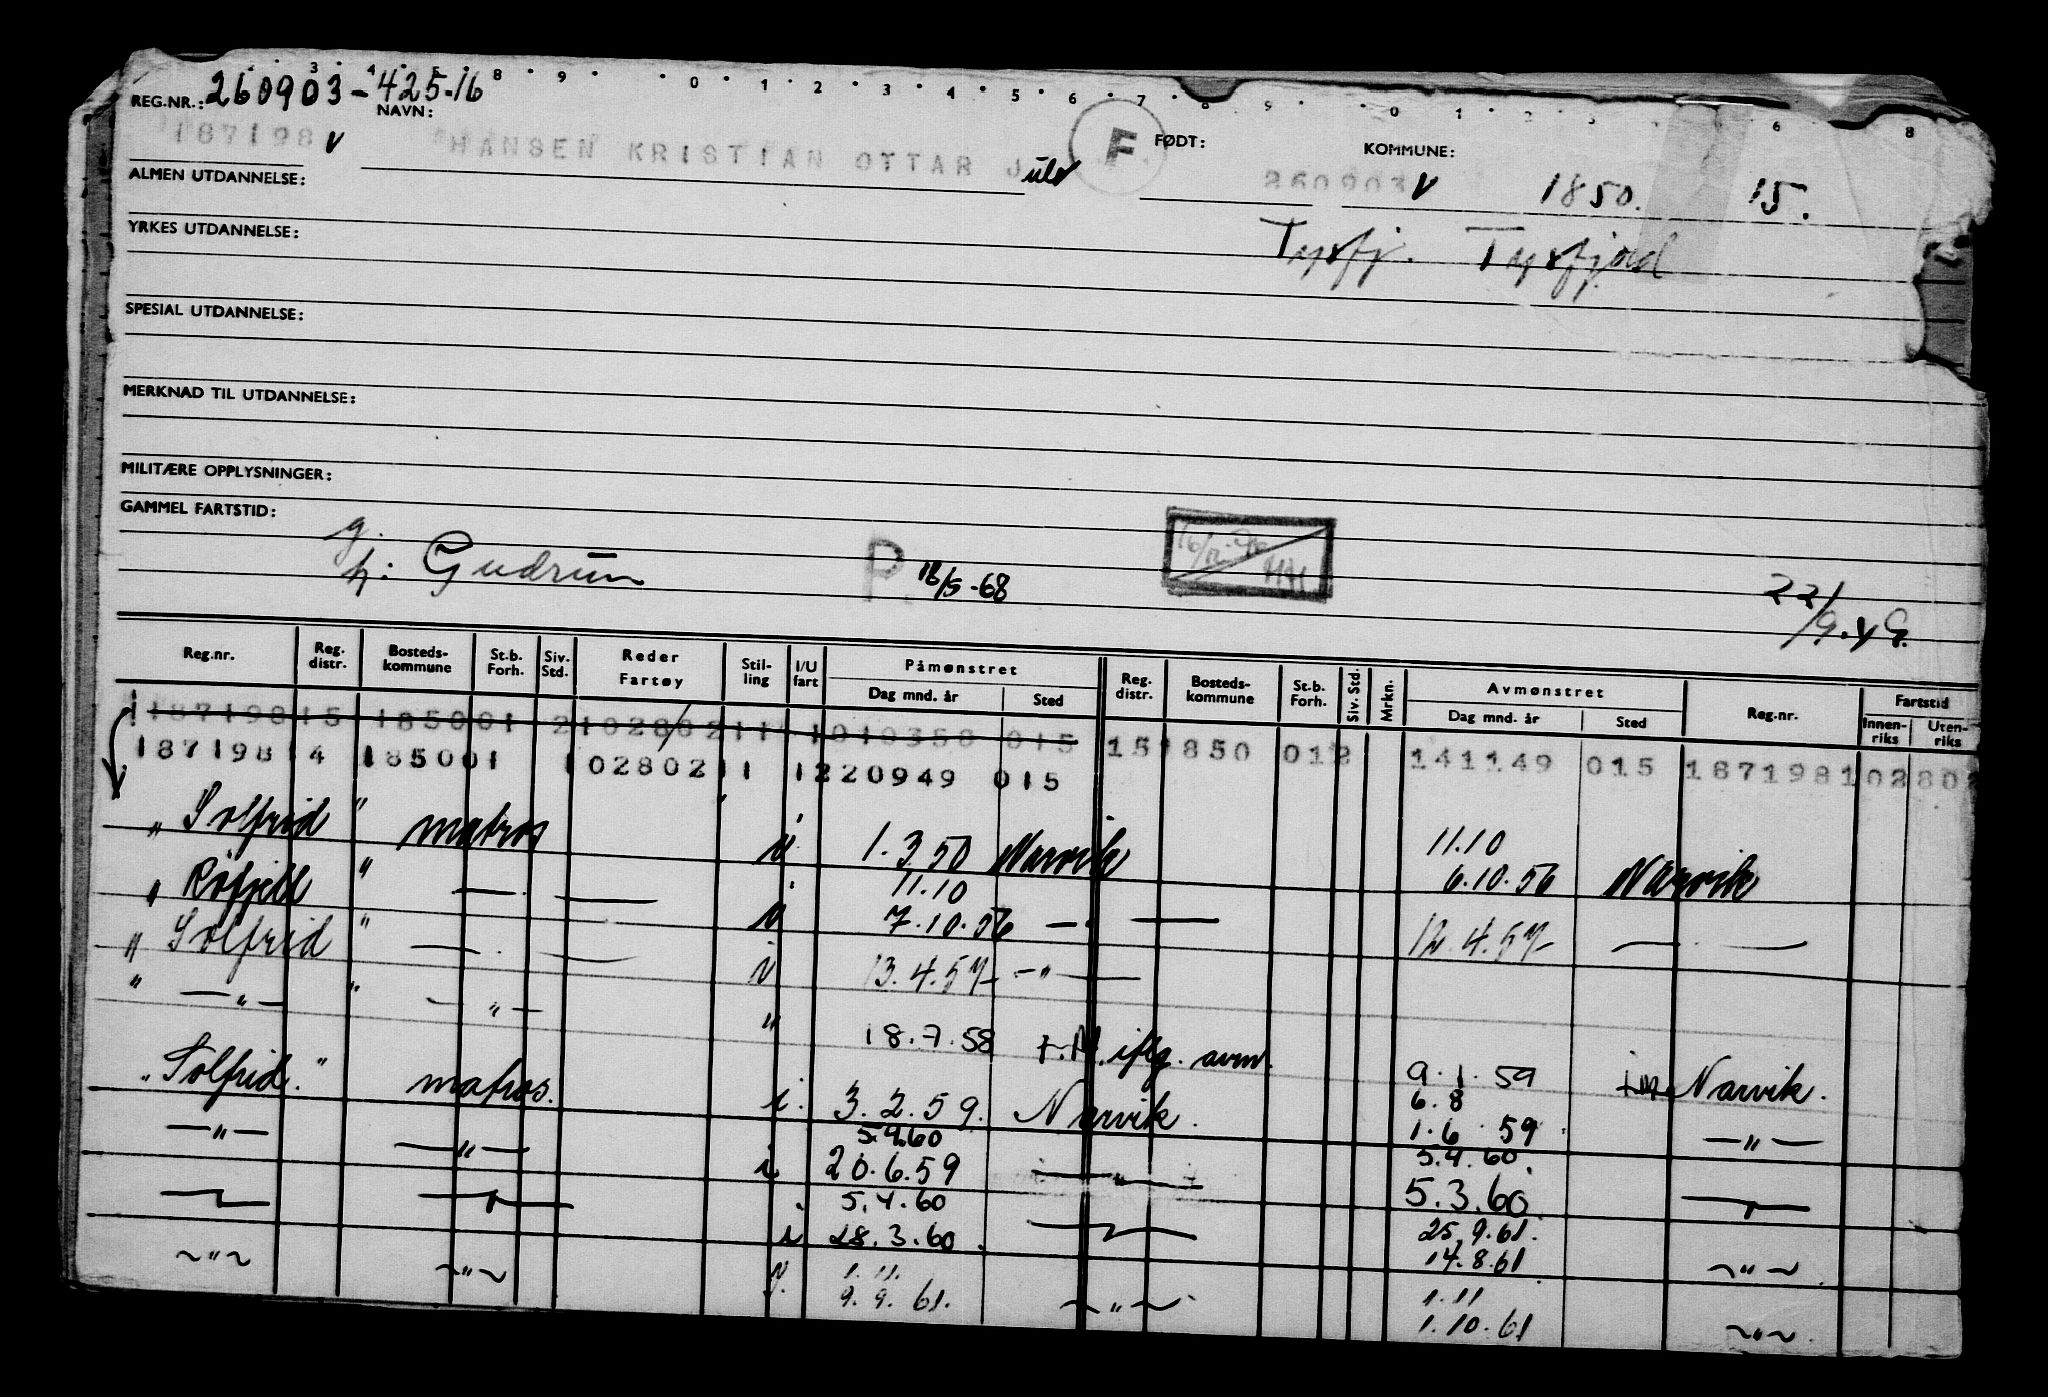 3 4 5 8 9 0 1 2 3 4 5 6 7 8 9 0 1 2 3 6 8
REG.NR.: 260903-425-16
NAVN: FØDT: KOMMUNE:
187198 v HANSEN KRISTIAN OTTAR J F 260903 v 1850. 15.
ALMEN UTDANNELSE:
Tysfj. Tysfjord
YRKES UTDANNELSE:
SPESIAL UTDANNELSE:
MERKNAD TIL UTDANNELSE:
MILITÆRE OPPLYSNINGER:
GAMMEL FARTSTID:
g.
h: Gudrun P. 18/5-68 22/9.49.
Reg.nr. Reg. distr. Bosteds-kommune St.b. Forh. Siv. Std. Reder Fartøy Stil-ling I/U fart Påmønstret Dag mnd. år Sted Reg. distr. Bosteds-kommune St.b. Forh. Siv. Std. Mrkn. Avmønstret Dag mnd. år Sted Reg.nr. Fartstid Innen-riks Uten-riks
187198 15 1850 01 2 102802 11 1 010350 015
187198 14 1850 01 1 02802 11 1 220949 015 15 1850 01 2 141149 015 187198 102802
„ Solfrid " matros i 1.3.50 Narvik 11.10 6.10.56 Narvik
„ Råfjell " — i 11.10 7.10.56 — — 12.4.57 — —
„ Solfrid " — i 13.4.57 —"—
" —"— " —"— " 18.7.58 f.M. iflg. avm. 9.1.59 Narvik.
„Solfrid." matros. i. 3.2.59. Narvik. 6.8 1.6.59 —"—
—"— —"— i 5.9.60 20.6.59 —"— 5.9.60. 5.3.60 —"—
—"— —"— i 5.4.60 28.3.60. —"— 25.9.61. 14.8.61 ~"~.
~"~ ~"~ 1.11. 9.9.61. ~"~ 1.11 1.10.61 ~"~.